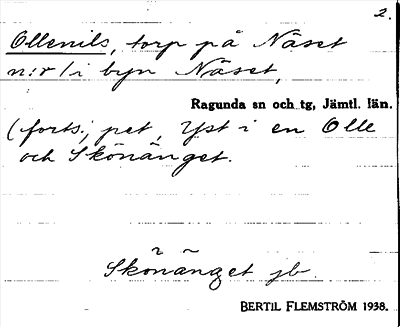 2.
Ollenils, torp på Näset
n:r 1 i byn Näset,
Ragunda sn och tg, Jämtl. län.
(forts.; pet, Yst i en Olle
och Skönänget.
Skönänget jb.
BERTIL FLEMSTRÖM 1938.